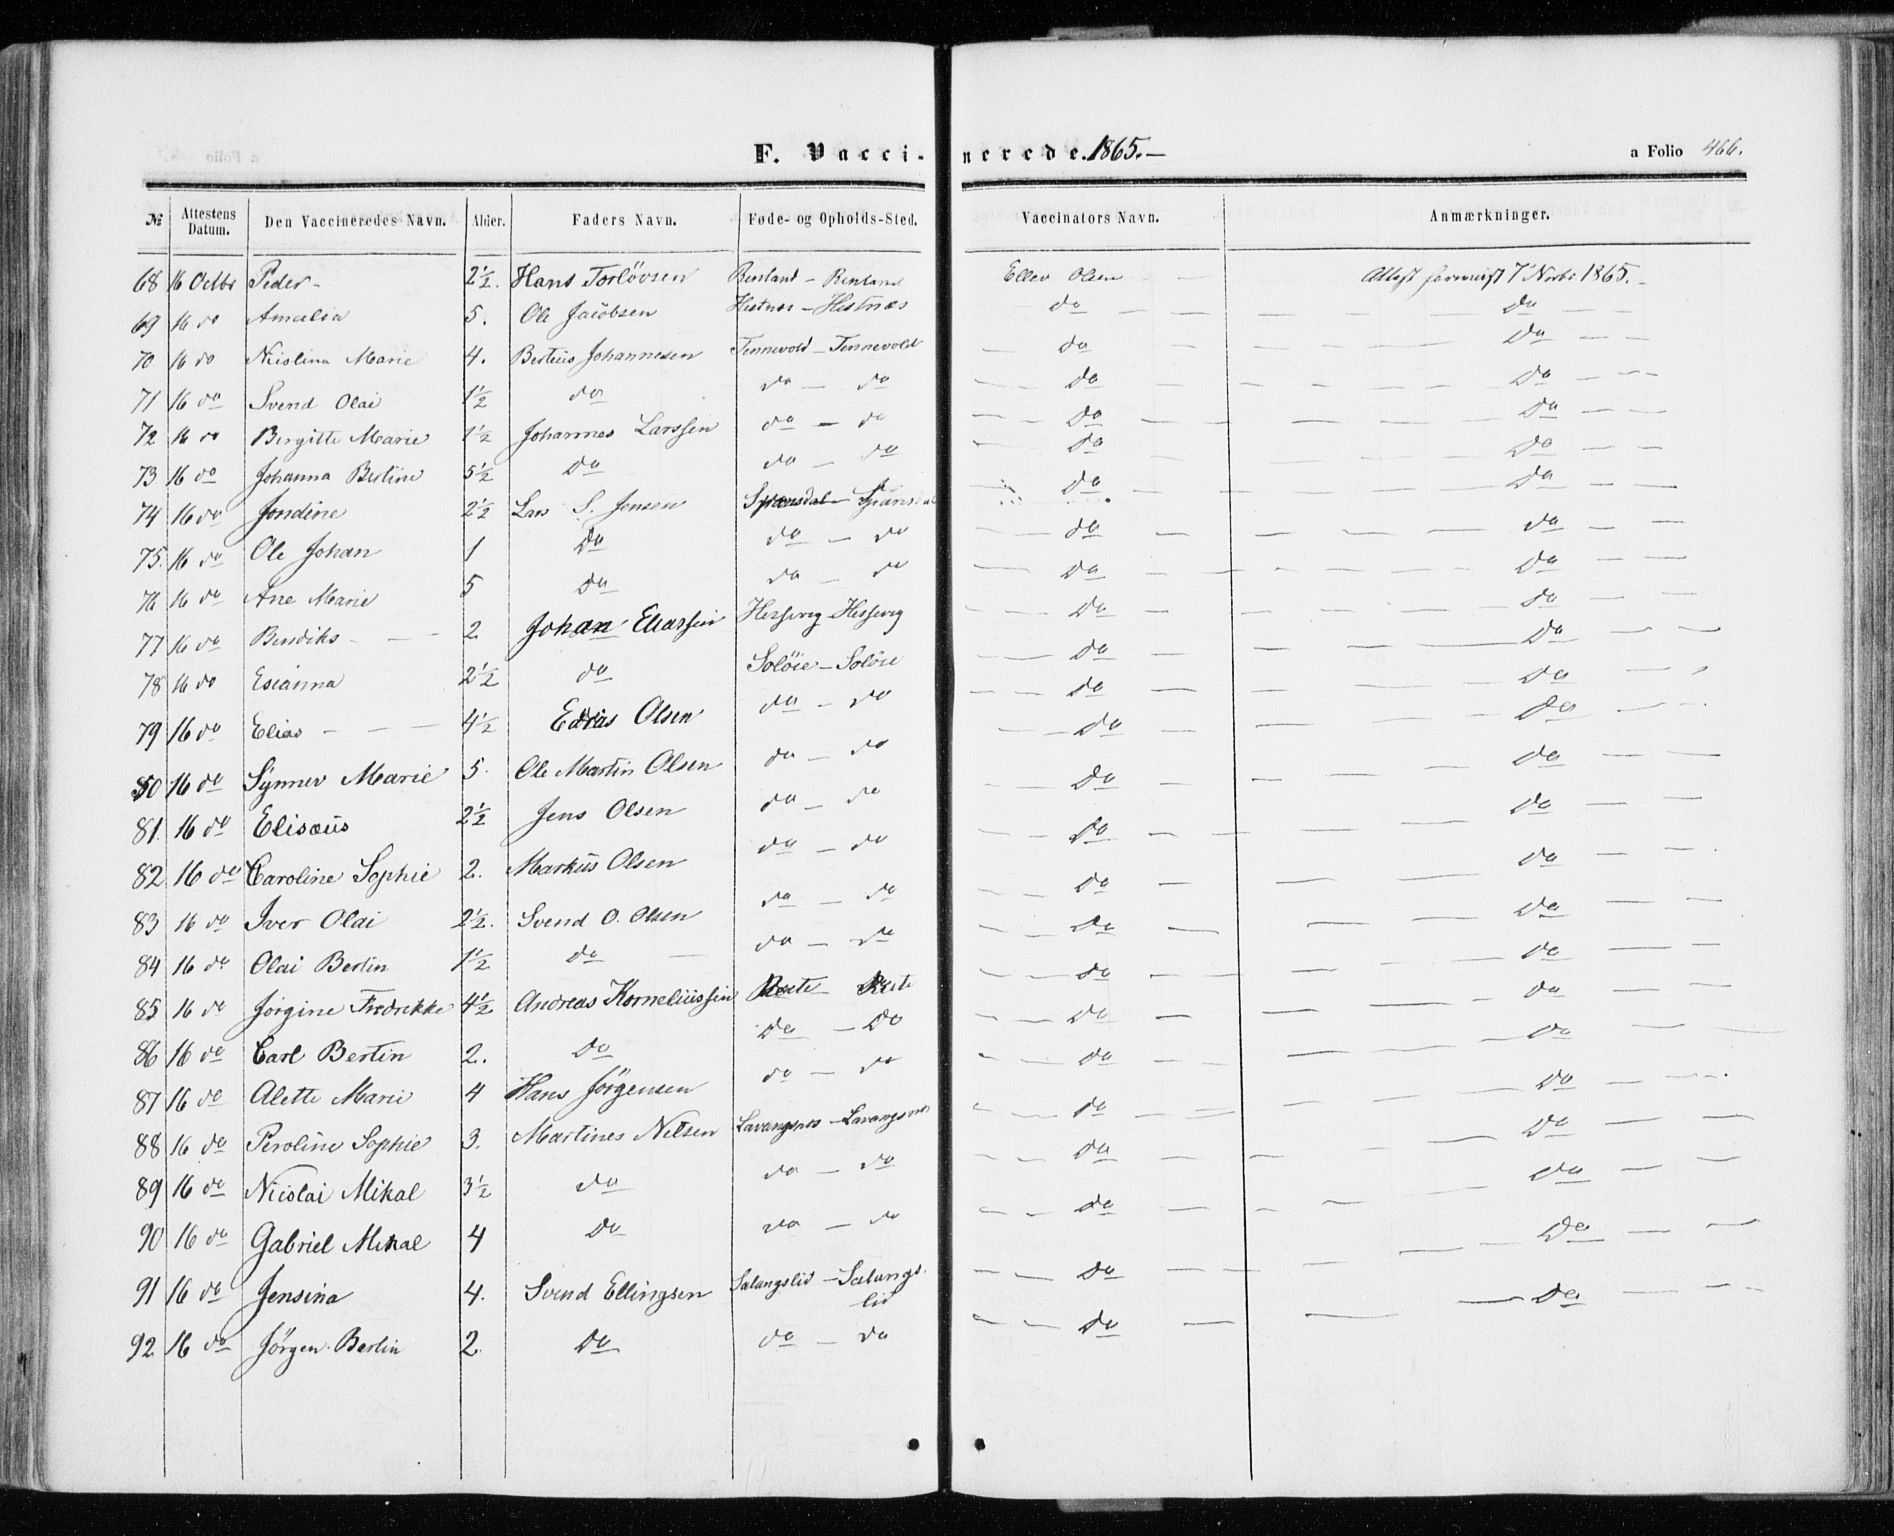 F. Vaccinerede. 1865.— a Folio 466.
№ Attestens Datum. Den Vaccineredes Navn. Alder. Faders Navn. Føde- og Opholds-Sted. Vaccinators Navn. Anmærkninger.
68 16 Octbr Peder - 2½. Hans Torlövsen Renland - Renland Ellev Olsen Attest foreviist 7 Novbr. 1865.
69 16 do Amalia 5. Ole Jacobsen Hestnes - Hestnæs do do
70. 16 do Nicolina Marie 4. Berteus Johannesen Tennevold - Tennevold do do
71 16 do Svend Olai 1½ do do - do do do
72 16 do Birgitte Marie 1½ Johannes Larssen do - do do do
73 16 do Johanna Bertine 5½ do do - do do do
74 16 do Jondine 2½ Lars S. Jensen Spansdal - Spansdal do do
75. 16 do Ole Johan 1 do do - do do do
76 16 do Ane Marie 5 do do - do do do
77 16 do Bendiks 2 Johan Eliassen Hessvig - Hessvig do do
78 16 do Esianna 2½ do Solöie - Solöie do do
79 16 do Elias 4½ Olsen do - do do do
80 16 do Synnev Marie 5. Ole Martin Olsen do - do do do
81. 16 do Elisæus 2½ Jens Olsen do - do do do
82 16 do Caroline Sophie 2. Markus Olsen do - do do do
83 16 do Iver Olai 2½. Svend O. Olsen do - do do do
84 16 do Olai Bertin 1½ do do - do do do
85 16 do Jørgine Fredrekke 4½ Andreas Korneliussen do do
86 16 do Carl Bertin 2. do do - do do do
87 16 do Alette Marie 4 Hans Jørgensen do - do do do
88 16 do Peroline Sophie 3. Martines Nilsen Lavangsnes - Lavangsnes do do
89 16 do Nicolai Mikal 3½ do do - do do do
90 16 do Gabriel Mikal 4 do do - do do do
91 16 do Jensina 4. Svend Ellingsen Salangslid - Salangslid do do
92 16 do Jörgen Bertin 2. do do - do do